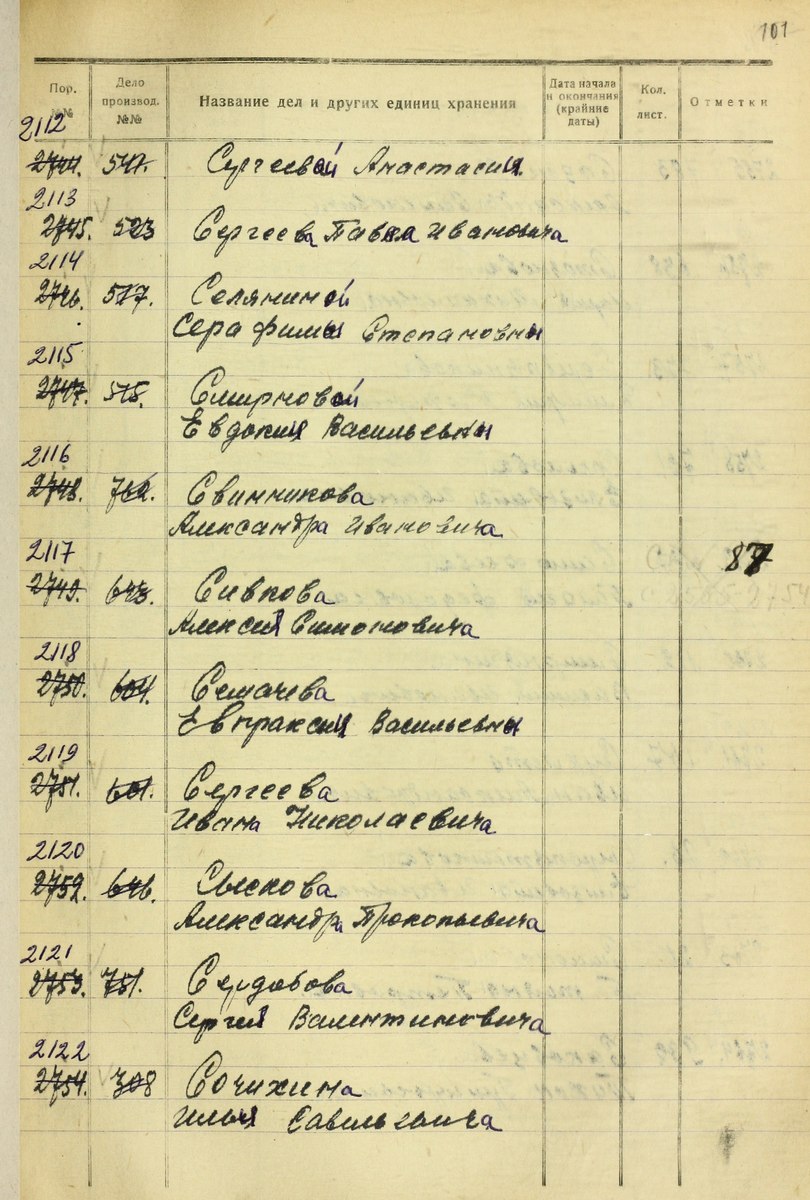 101
Пор. №№ Дело производ. №№ Название дел и других единиц хранения Дата начала и окончания (крайние даты) Кол. лист. Отметки
2112
2744. 547. Сергеевой Анастасии
2113
2745. 523 Сергеева Павла Ивановича
2114
2746. 517. Селяниной
Серафимы Степановны
2115
2747. 515. Смирновой
Евдокии Васильевны
2116
2748. 762. Свинникова
Александра Ивановича
2117
87
2749. 643. Сивкова
Алексея Симоновича
2118
2750. 604. Семачева
Евпраксии Васильевны
2119
2751. 601. Сергеева
Ивана Николаевича
2120
2752. 646. Сыскова
Александра Прокопьевича
2121
2753. 751. Сердобова
Сергея Валентиновича
2122
2754. 308 Сочихина
Ильи Савельевича